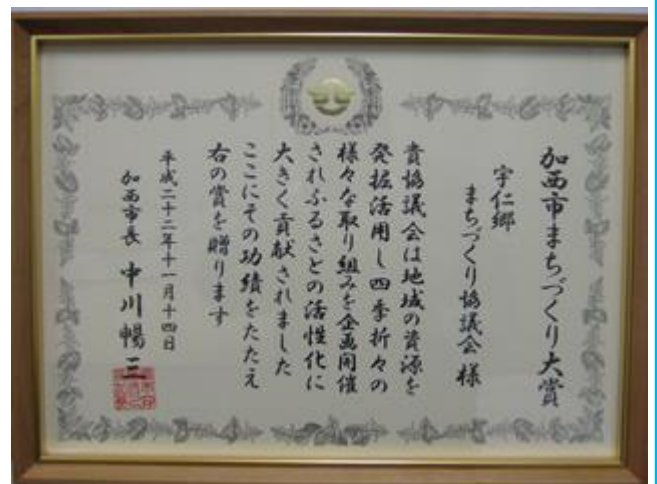 加西市まちづくり大賞
宇仁郷
まちづくり協議会様
貴協議会は地域の資源を
発掘活用し四季折々の
様々な取り組みを企画開催
されふるさとの活性化に
大きく貢献されました
ここにその功績をたたえ
右の賞を贈ります
平成二十二年十一月十四日
加西市長 中川暢三